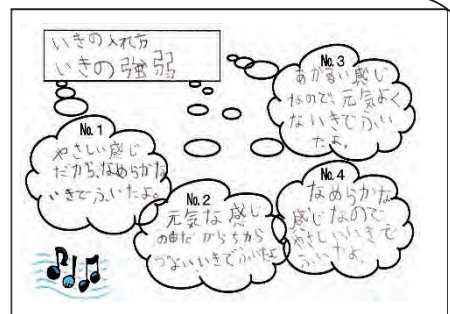 いきの入れ方
いきの強弱
No. 1
やさしい感じ
だから、なめらかな
いきでふいたよ。
No. 2
元気な感じ
の曲だからちから
づよいいきでふいたよ
No. 3
あかるい感じ
なので、元気よく
ないきでふい
たよ。
No. 4
なめらかな
感じなので
やさしいいきで
ふいたよ